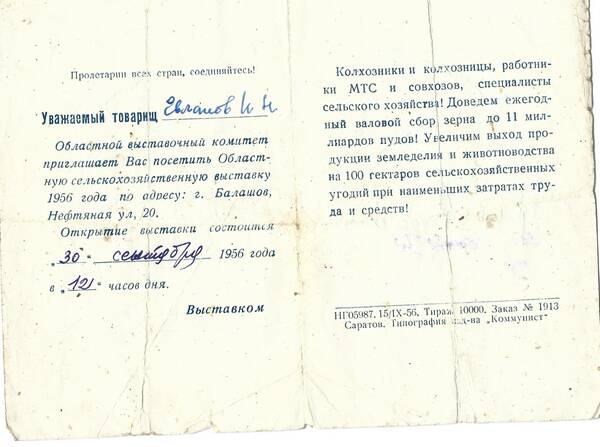 Пролетарии всех стран, соединяйтесь!
Уважаемый товарищ Евлашов И Н
Областной выставочный комитет
приглашает Вас посетить Област-
ную сельскохозяйственную выставку
1956 года по адресу: г. Балашов,
Нефтяная ул, 20.
Открытие выставки состоится
„30“ сентября 1956 года
в „12“ часов дня.
Выставком
Колхозники и колхозницы, работни-
ки МТС и совхозов, специалисты
сельского хозяйства! Доведем ежегод-
ный валовой сбор зерна до 11 мил-
лиардов пудов! Увеличим выход про-
дукции земледелия и животноводства
на 100 гектаров сельскохозяйственных
угодий при наименьших затратах тру-
да и средств!
НГ05987. 15/IX-56. Тираж 10000. Заказ № 1913
Саратов. Типография изд-ва „Коммунист“